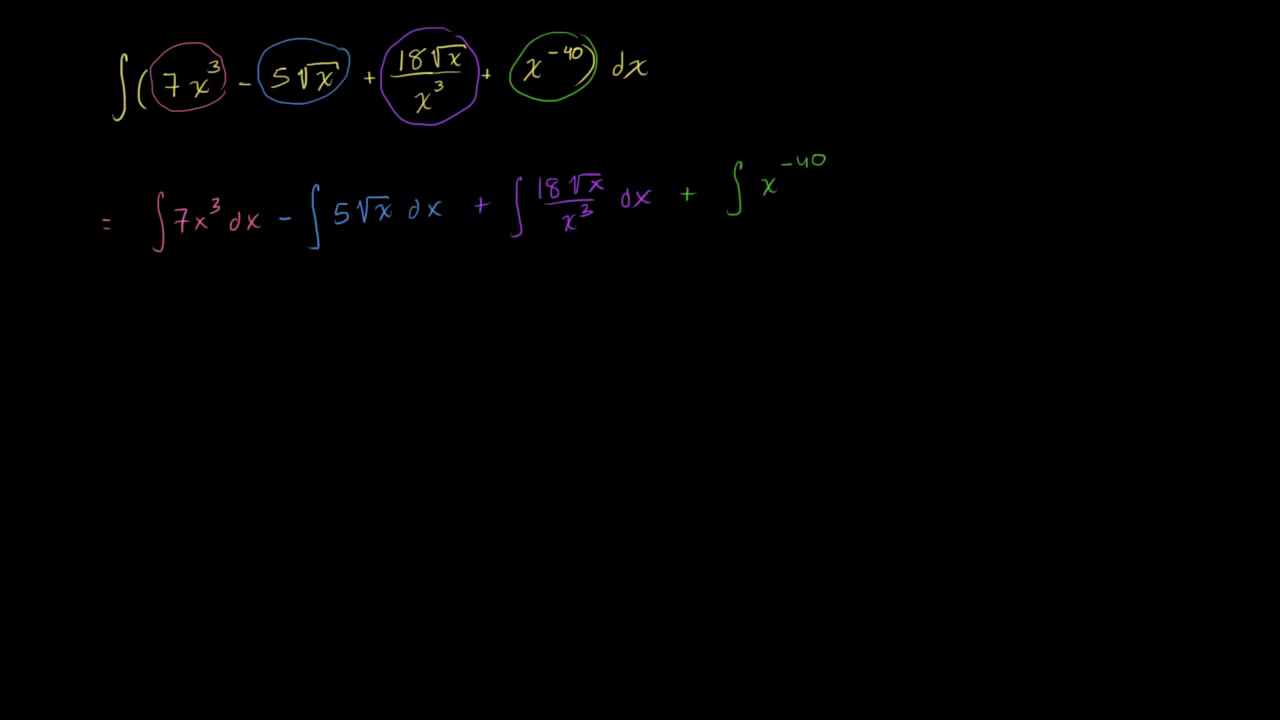 ∫(7x³ - 5√x + 18√x/x³ + x⁻⁴⁰) dx
= ∫7x³ dx - ∫5√x dx + ∫18√x/x³ dx + ∫x⁻⁴⁰